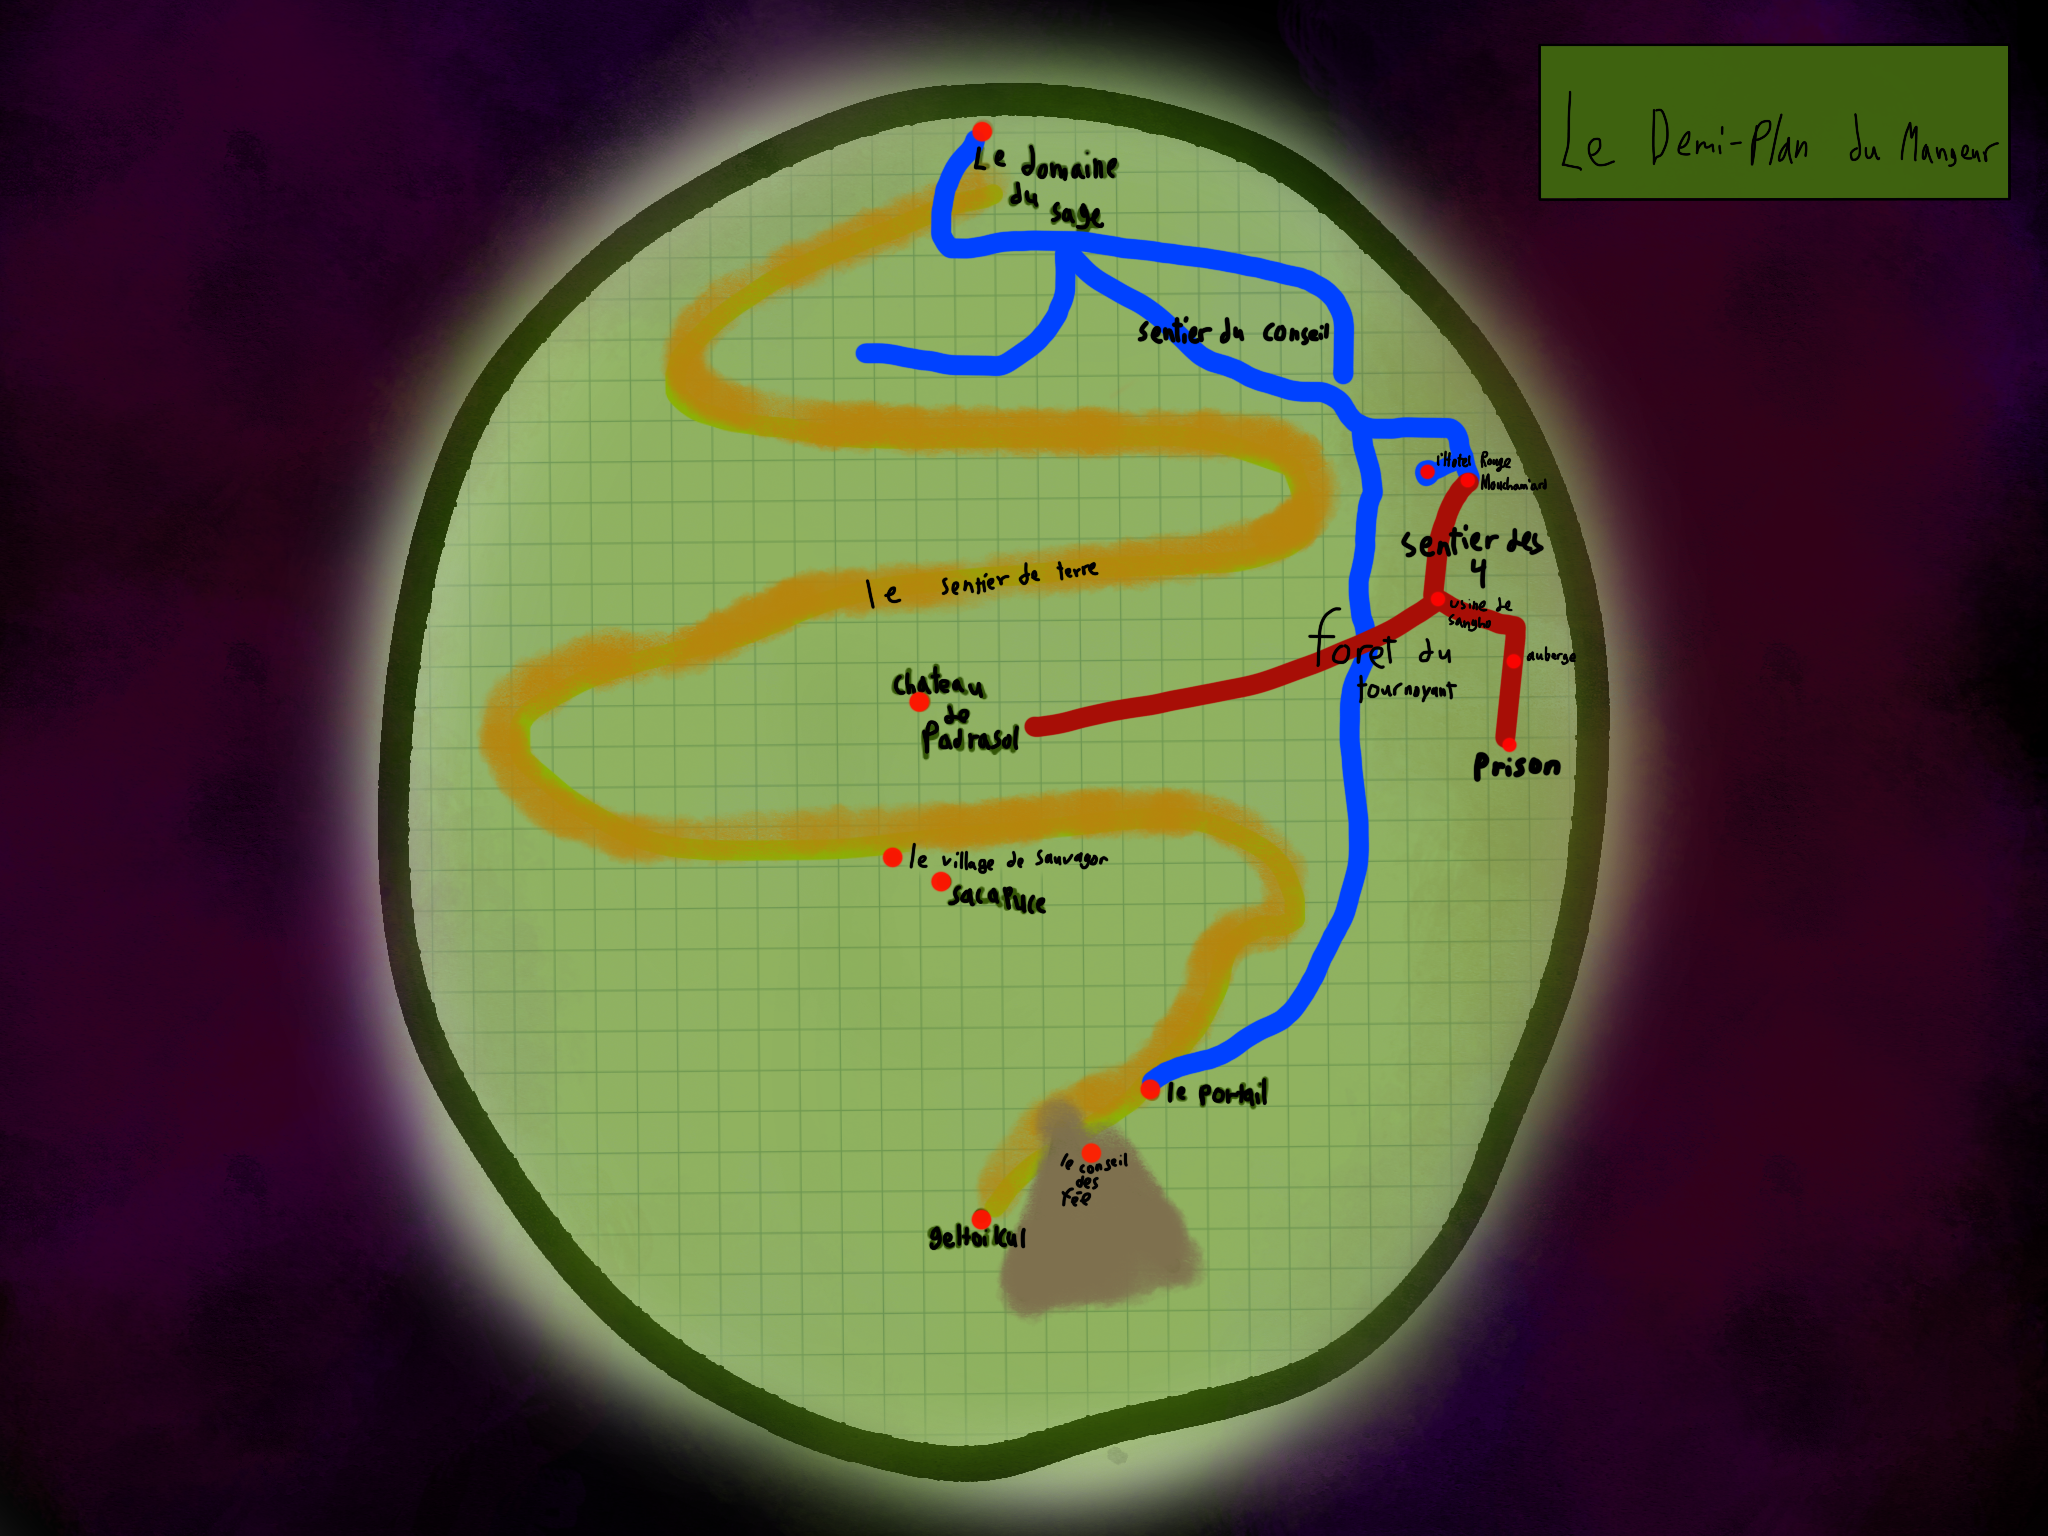 Le Demi-Plan du Mangeur
Le domaine
du
sage
sentier du conseil
l'Hotel Rouge
Mouchamiard
sentier des
4
le sentier de terre
usine de
sangho
foret du
tournoyant
auberge
chateau
de
Padrasol
Prison
le village de sauvagor
sacapuce
le portail
le conseil
des
Fée
geltoikul